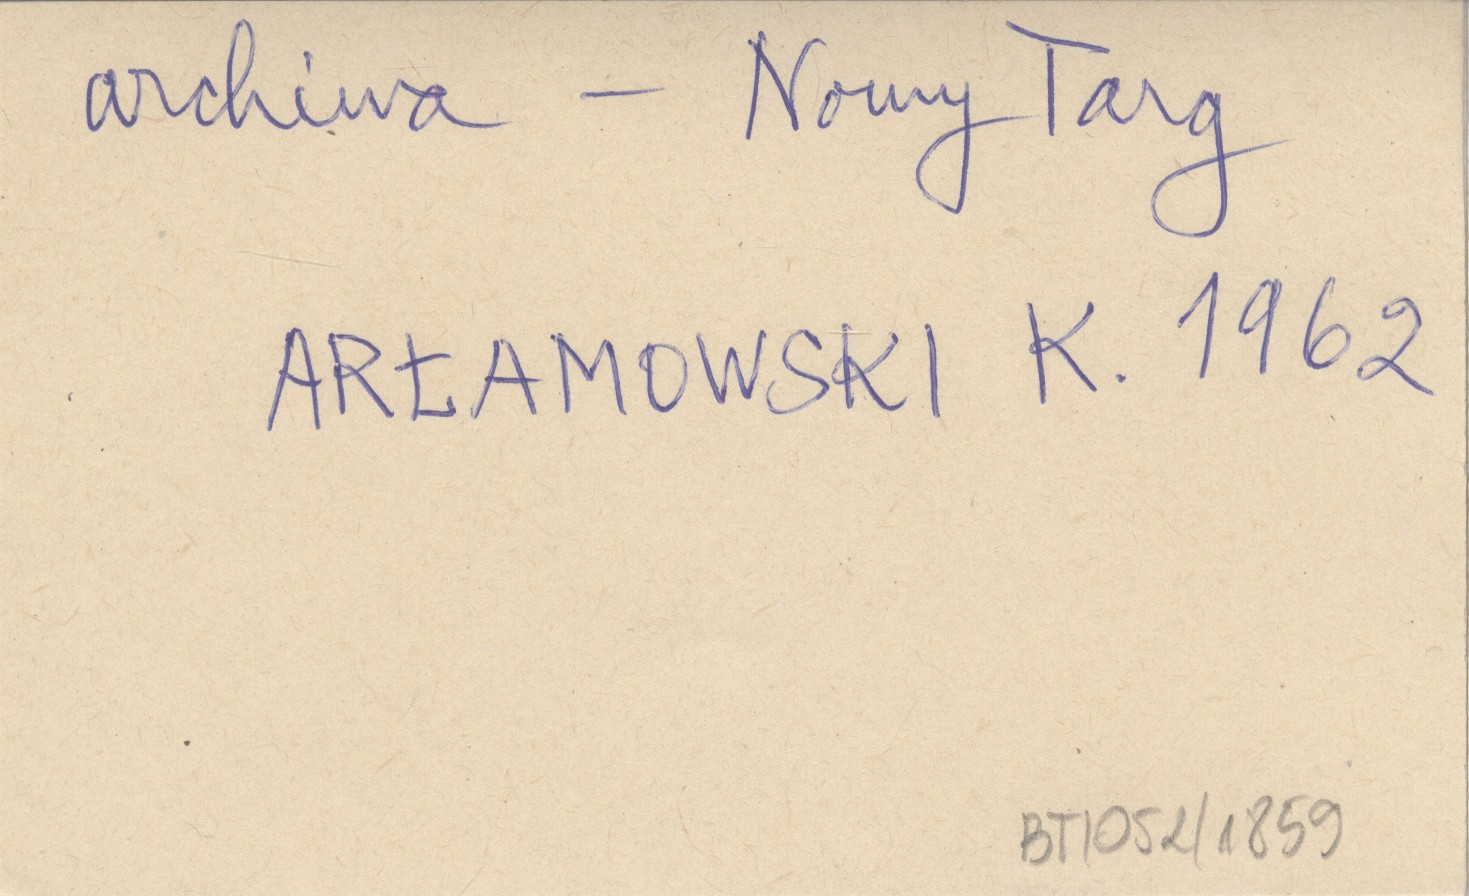 archiwa - Nowy Targ
ARŁAMOWSKI K. 1962
BT1052/1859